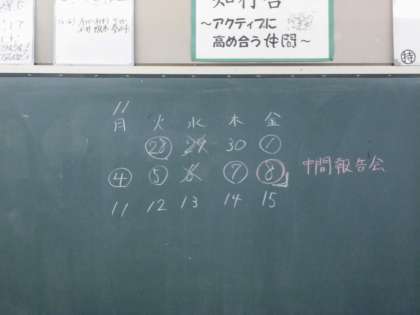 知行合
～アクティブに
高め合う仲間～
特
11
月 火 水 木 金
28 29 30 1
4 5 6 7 8 中間報告会
11 12 13 14 15